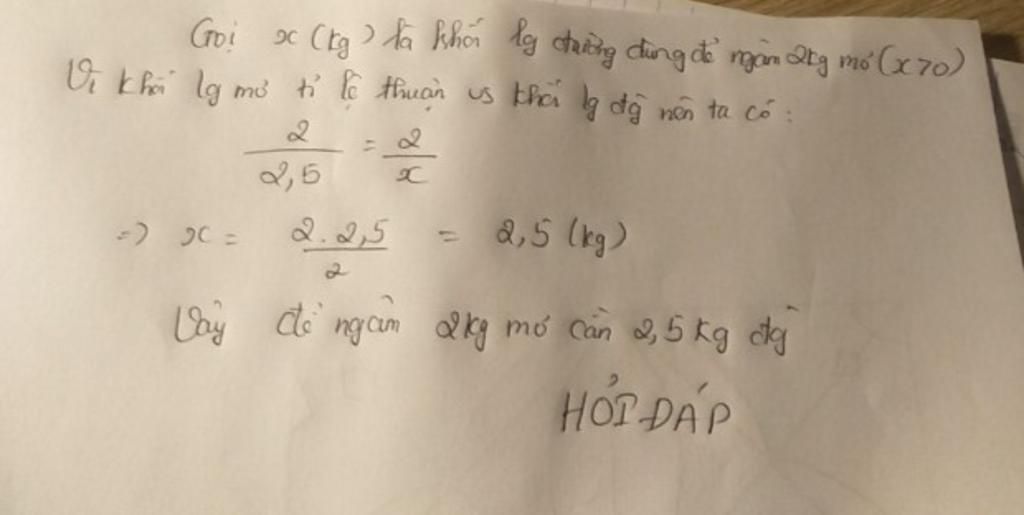 Gọi x (kg) là khối lg đường dùng để ngâm 2kg mơ (x>0)
Vì khối lg mơ tỉ lệ thuận vs khối lg đg nên ta có:
2/2,5 = 2/x
=> x = 2.2,5/2 = 2,5 (kg)
Vậy để ngâm 2kg mơ cần 2,5kg đg
HỎI ĐÁP